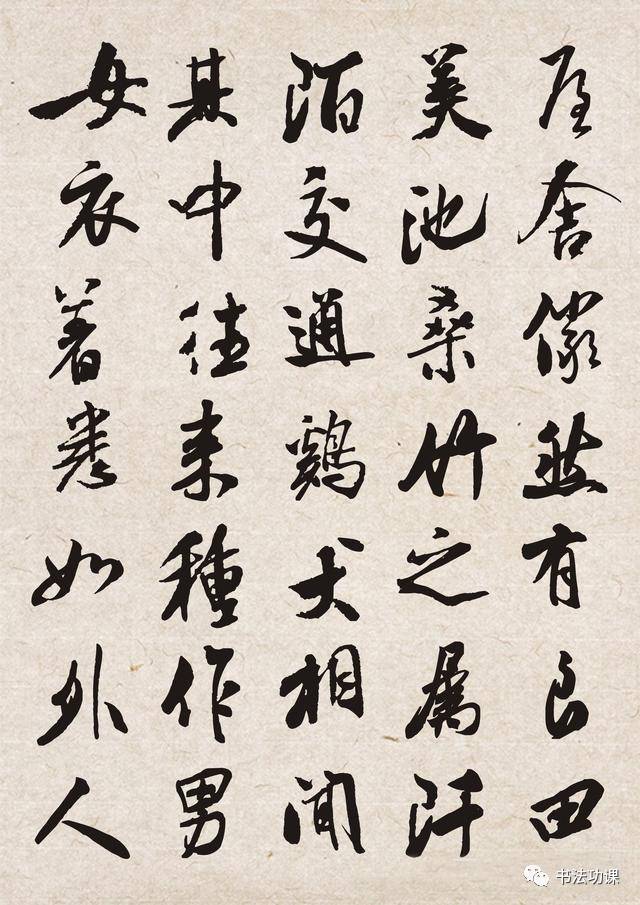 屋舍儼然有良田
美池桑竹之属阡
陌交通鷄犬相闻
其中往来種作男
女衣著悉如外人
书法功课